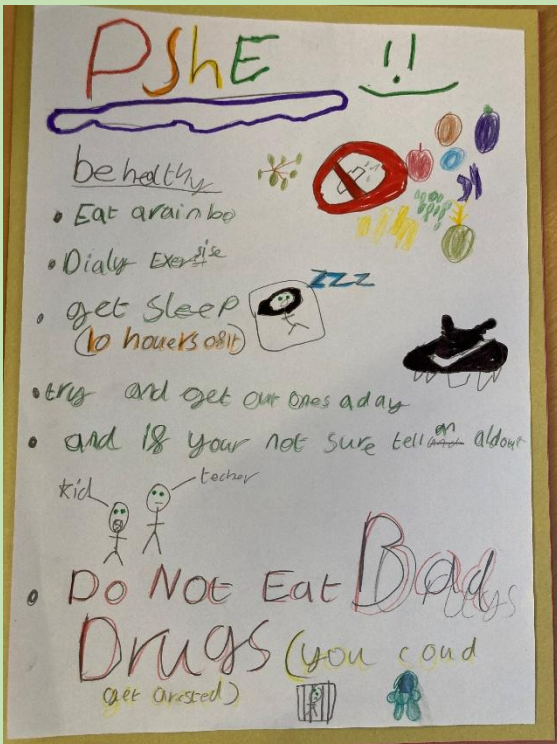 PShE !!
be healthy
• Eat arainbo
• Dialy Exersise
• get sleep
(10 houers ofit)
zzz
• try and get our ones a day
• and if your not sure tell an aldowt
kid
techer
• Do Not Eat Bad
Drugs (you coud
get arested)